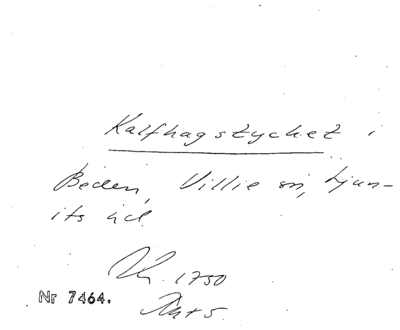 Kalfhagstycket i
Beden, Villie sn, Ljun-
its hd.
1750
Nr 7464. Akt 5.